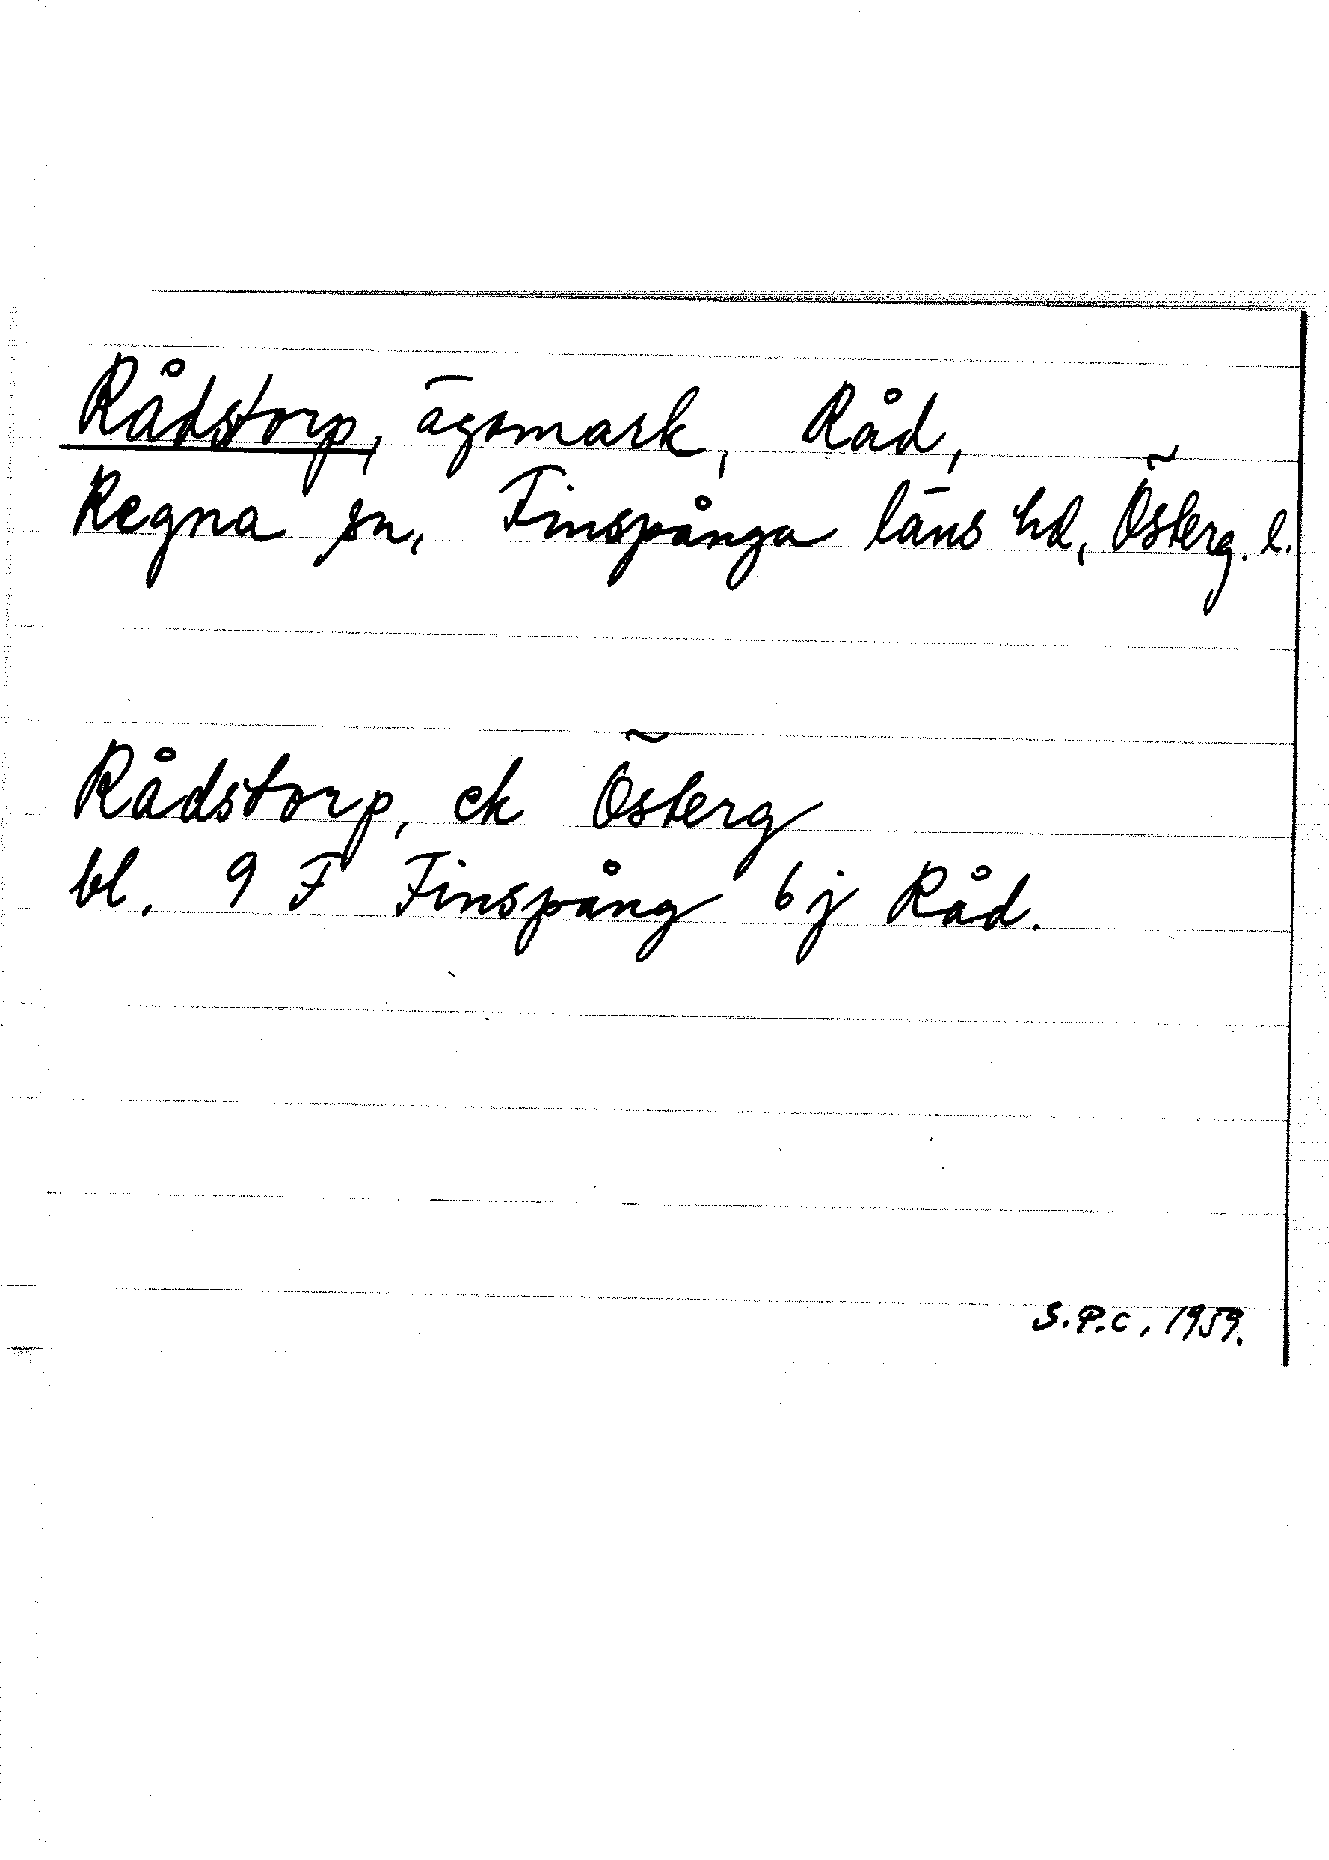 Rådstorp, ägomark, Råd,
Regna sn, Finspånga läns hd, Österg. l.
Rådstorp, ek Österg
bl. 9 F Finspång 6 j Råd.
S.P.C, 1959.